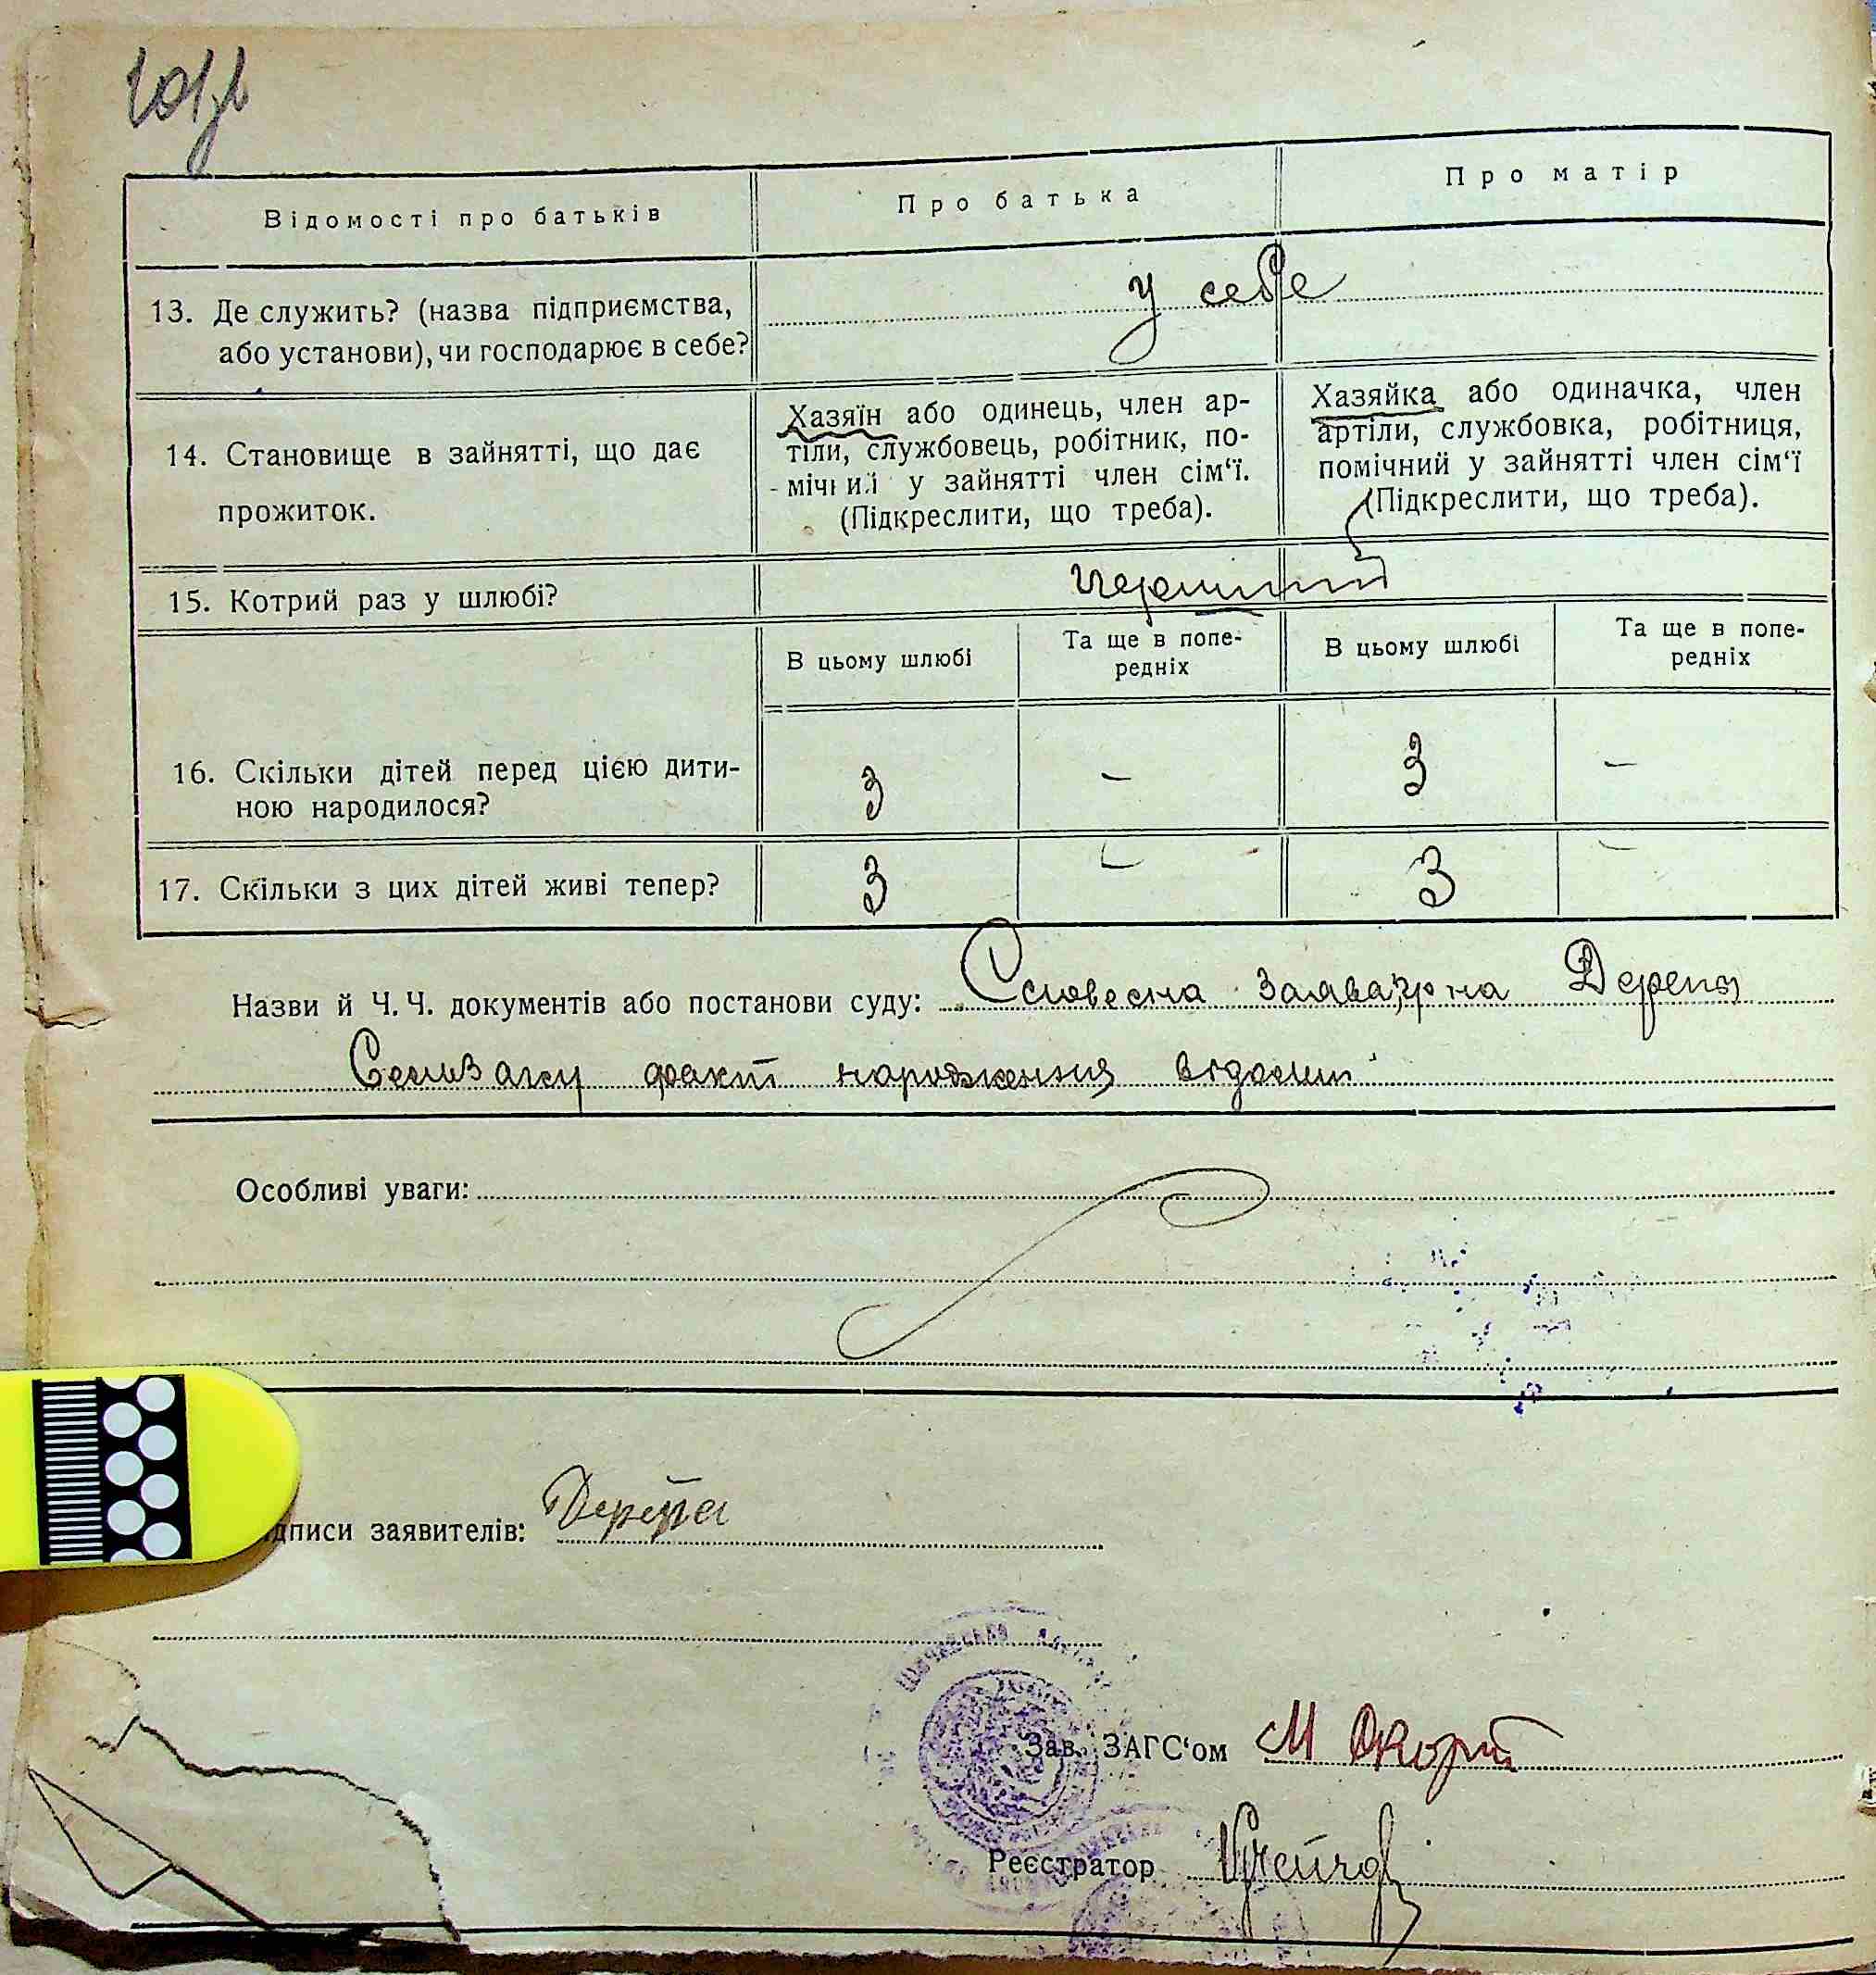 Відомості про батьків
Про батька
Про матір
13. Де служить? (назва підприємства,
або установи), чи господарює в себе?
у себе
14. Становище в зайнятті, що дає
прожиток.
Хазяїн або одинець, член ар-
тіли, службовець, робітник, по-
мічний у зайнятті член сім‘ї.
(Підкреслити, що треба).
Хазяйка або одиначка, член
артіли, службовка, робітниця,
помічний у зайнятті член сім‘ї
(Підкреслити, що треба).
15. Котрий раз у шлюбі?
перший
В цьому шлюбі
Та ще в попе-
редніх
В цьому шлюбі
Та ще в попе-
редніх
16. Скільки дітей перед цією дити-
ною народилося?
3 — 3 —
17. Скільки з цих дітей живі тепер?
3 — 3 —
Назви й Ч. Ч. документів або постанови суду: Словесна заява гр на Дерепа
факт народження відомий
Особливі уваги:
дписи заявителів: Дерепа
Зав. ЗАГС‘ом
Реєстратор